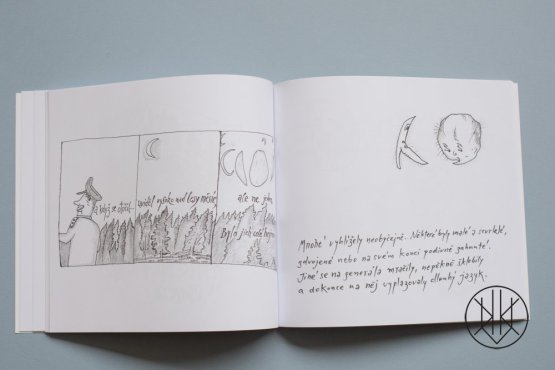 a když se otočil,
uviděl nízko nad lesy měsíc
ale ne jeden
Bylo jich celé
Mnohé vyhlížely neobyčejně. Některé byly malé a scvrklé,
zdvojené nebo na svém konci podivně zahnuté.
Jiné se na generála mračily, nepěkně šklebily
a dokonce na něj vyplazovaly dlouhý jazyk.